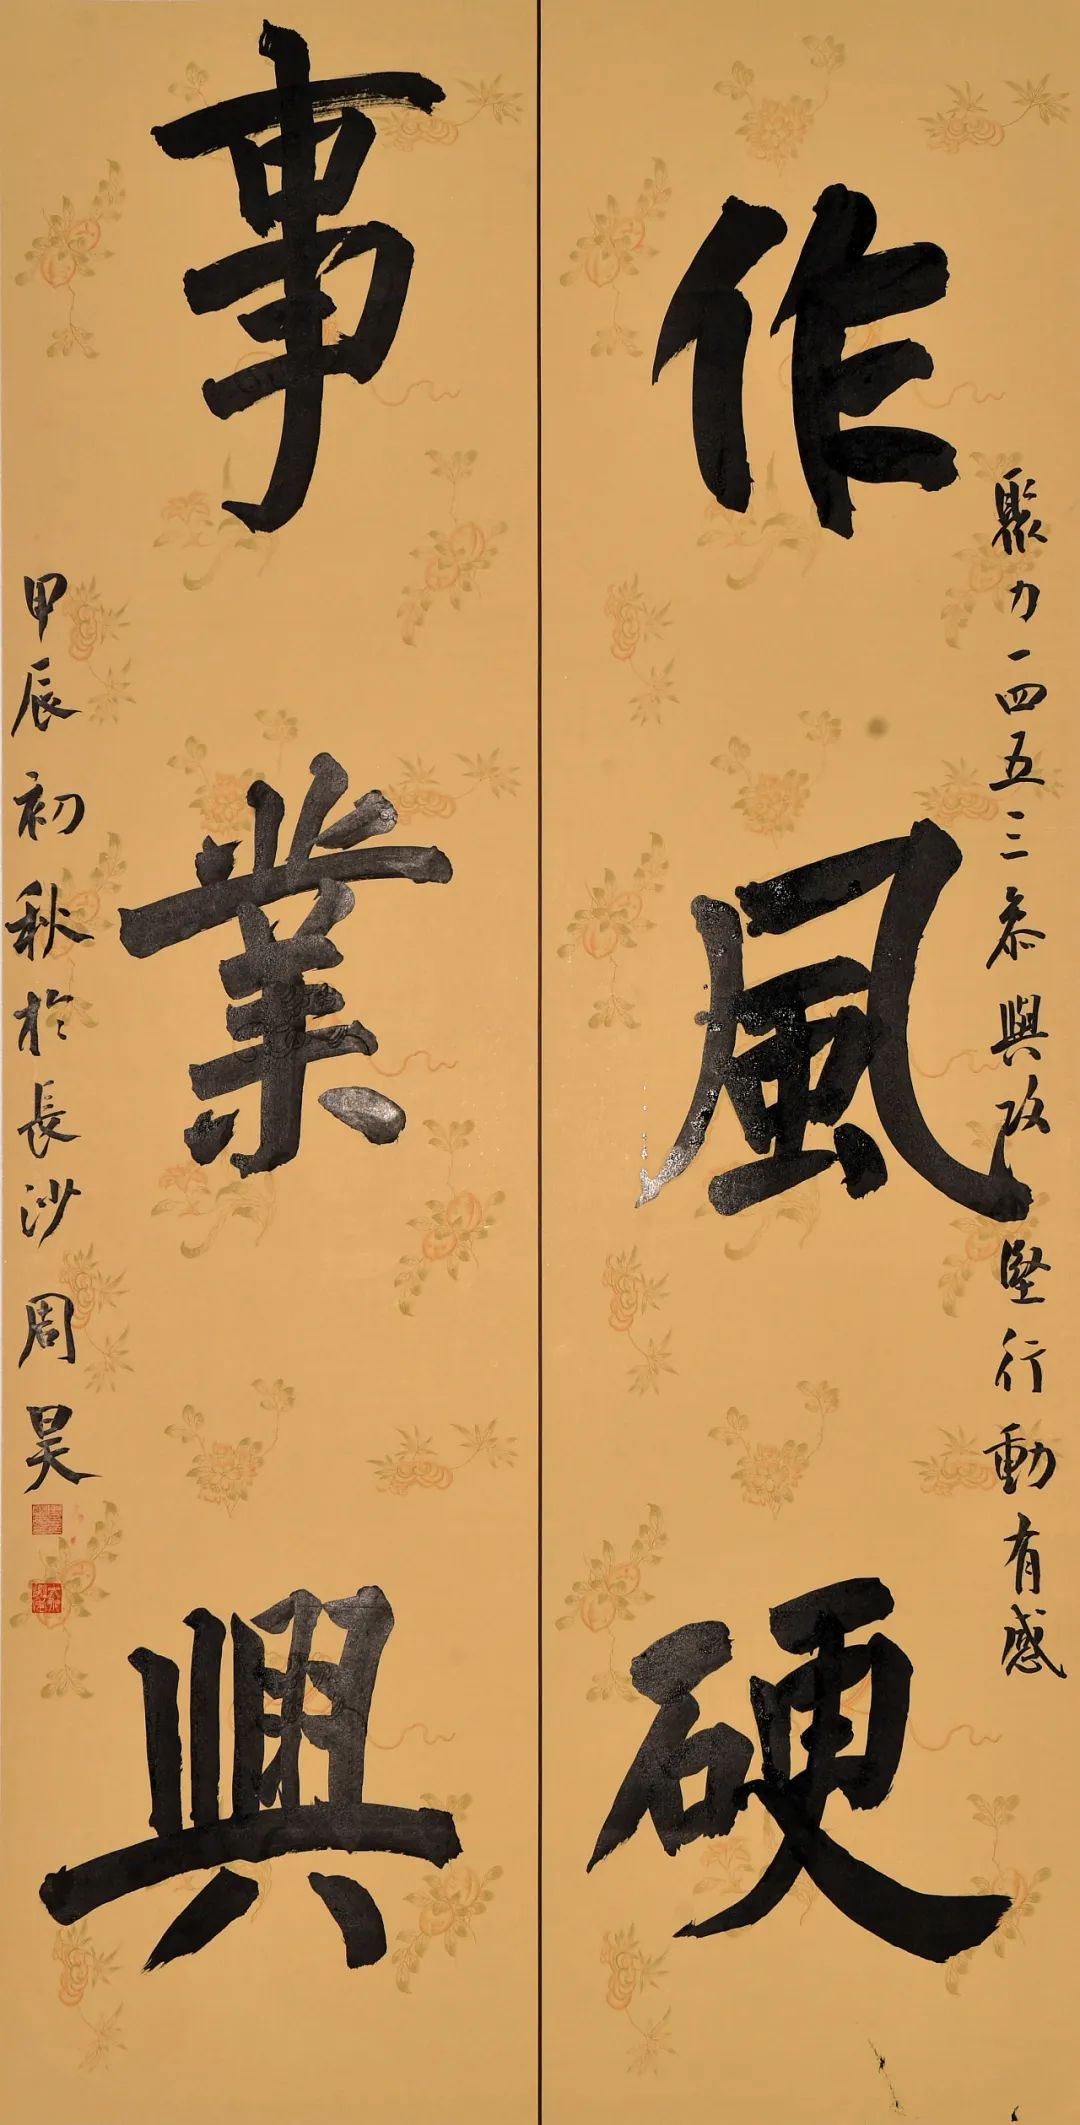 聚力一四五三參與攻堅行動有感
作風硬
事業興
甲辰初秋於長沙周昊